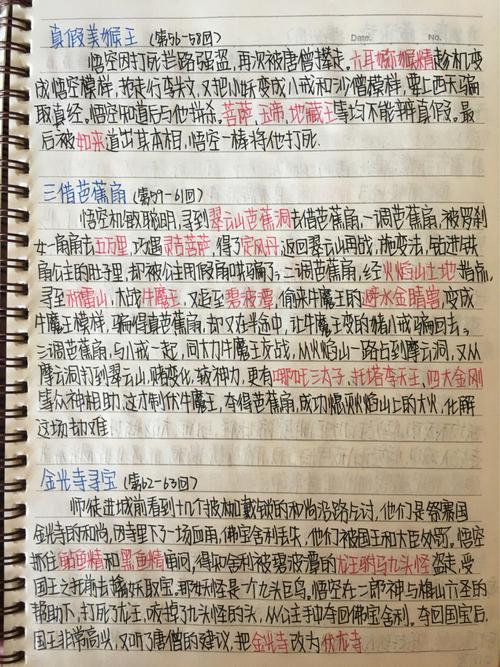 Date.
No.
真假美猴王(第56-58回)
悟空因打死拦路强盗,再次被唐僧撵走。六耳猕猴精趁机变
成悟空模样,抢走行李关文,又把小妖变成八戒和沙僧模样,要上西天骗
取真经。悟空知道后与他拼杀。菩萨,玉帝,地藏王等均不能辨真假。最
后被如来道出其本相,悟空一棒将他打死.
三借芭蕉扇(第59-61回)
悟空机敏聪明,寻到翠云山芭蕉洞去借芭蕉扇,一调芭蕉扇,被罗刹
女一扇扇去五万里,巧遇灵吉菩萨,得了定风丹,返回翠云山再战,他变法,钻进铁
扇公主的肚子里,却被公主用假扇哄骗了;二调芭蕉扇,经火焰山土地指点,
寻至积雷山,大战牛魔王,又追至碧波潭,偷来牛魔王的避水金睛兽,变成
牛魔王模样,骗得真芭蕉扇,却又在半途中,让牛魔王变的猪八戒骗回去。;
三调芭蕉扇,与八戒一起,同大力牛魔王交战,从火焰山一路占到摩云洞,又从
摩云洞打到翠云山,赌变化,较神力,更有哪吒三太子,托塔李天王,四大金刚
等众神相助,这才制伏牛魔王,夺得芭蕉扇,成功熄灭火焰山上的大火,化解
这场劫难
金光寺寻宝(第62-63回)
师徒进城前看到十几个披枷戴锁的和尚沿路乞讨,他们是祭赛国
金光寺的和尚,因寺里下了一场血雨,佛宝舍利丢失,他们被国王和大臣外罚,悟空
抓住鲇鱼精和黑鱼精审问,得知舍利被碧波潭的龙王驸马九头怪盗走,受
国王之托前去擒妖取宝。那妖怪是一个九头巨鸟。悟空在二郎神与梅山六圣的
帮助下,打死了龙王,咬掉了九头怪的头,从公主手中夺回佛宝舍利。夺回国宝后,
国王非常高兴,又听了唐僧的建议,把金光寺改为伏龙寺